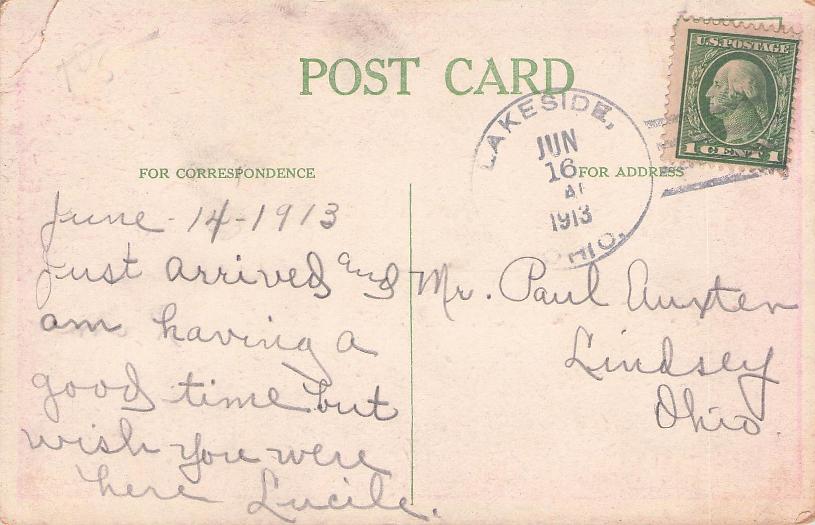 POST CARD
U.S. POSTAGE
1 CENT 1
LAKESIDE,
JUN
16
A
1913
OHIO.
FOR CORRESPONDENCE
FOR ADDRESS
June - 14 - 1913
just arrived and
am having a
good time but
wish you were
here Lucile.
Mr. Paul Auxter
Lindsey
Ohio.